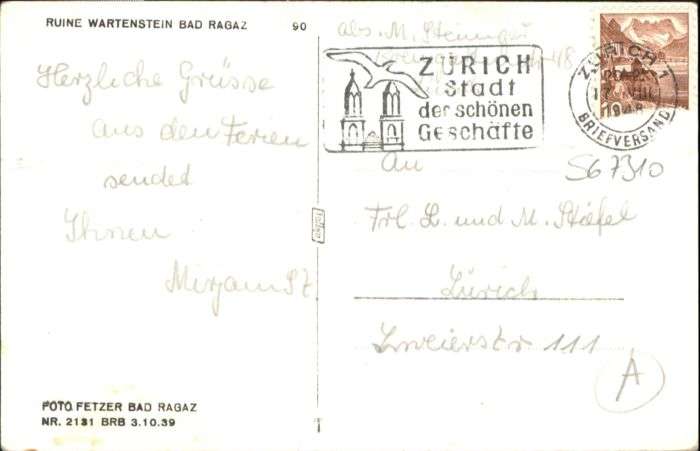 RUINE WARTENSTEIN BAD RAGAZ 90
Herzliche Grüsse
aus den Ferien
sendet
Ihnen
Mirjam St
FOTO FETZER BAD RAGAZ
NR. 2131 BRB 3.10.39
abs. M. Steinegg
ZÜRICH
Stadt
der schönen
Geschäfte
ZÜRICH 1
1948
BRIEFVERSAND
An
567310
Frl. L. und M. Stiefel
Zürich
Zweierstr. 111
A